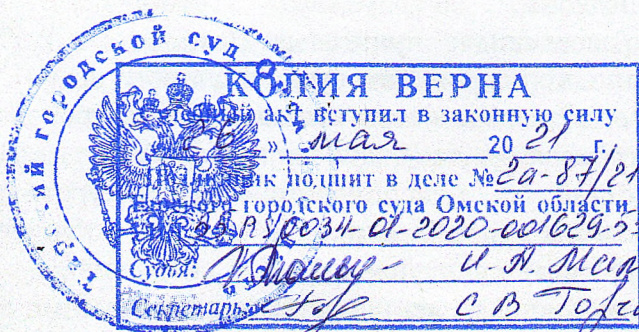 Тарский городской суд Ом
КОПИЯ ВЕРНА
Судебный акт вступил в законную силу
« 26 » мая 20 21 г.
Подлинник подшит в деле № 2а-87/21
Тарского городского суда Омской области
RS0034-01-2020-001629-5
Судья: И.А. Мал
Секретарь: С В Торг